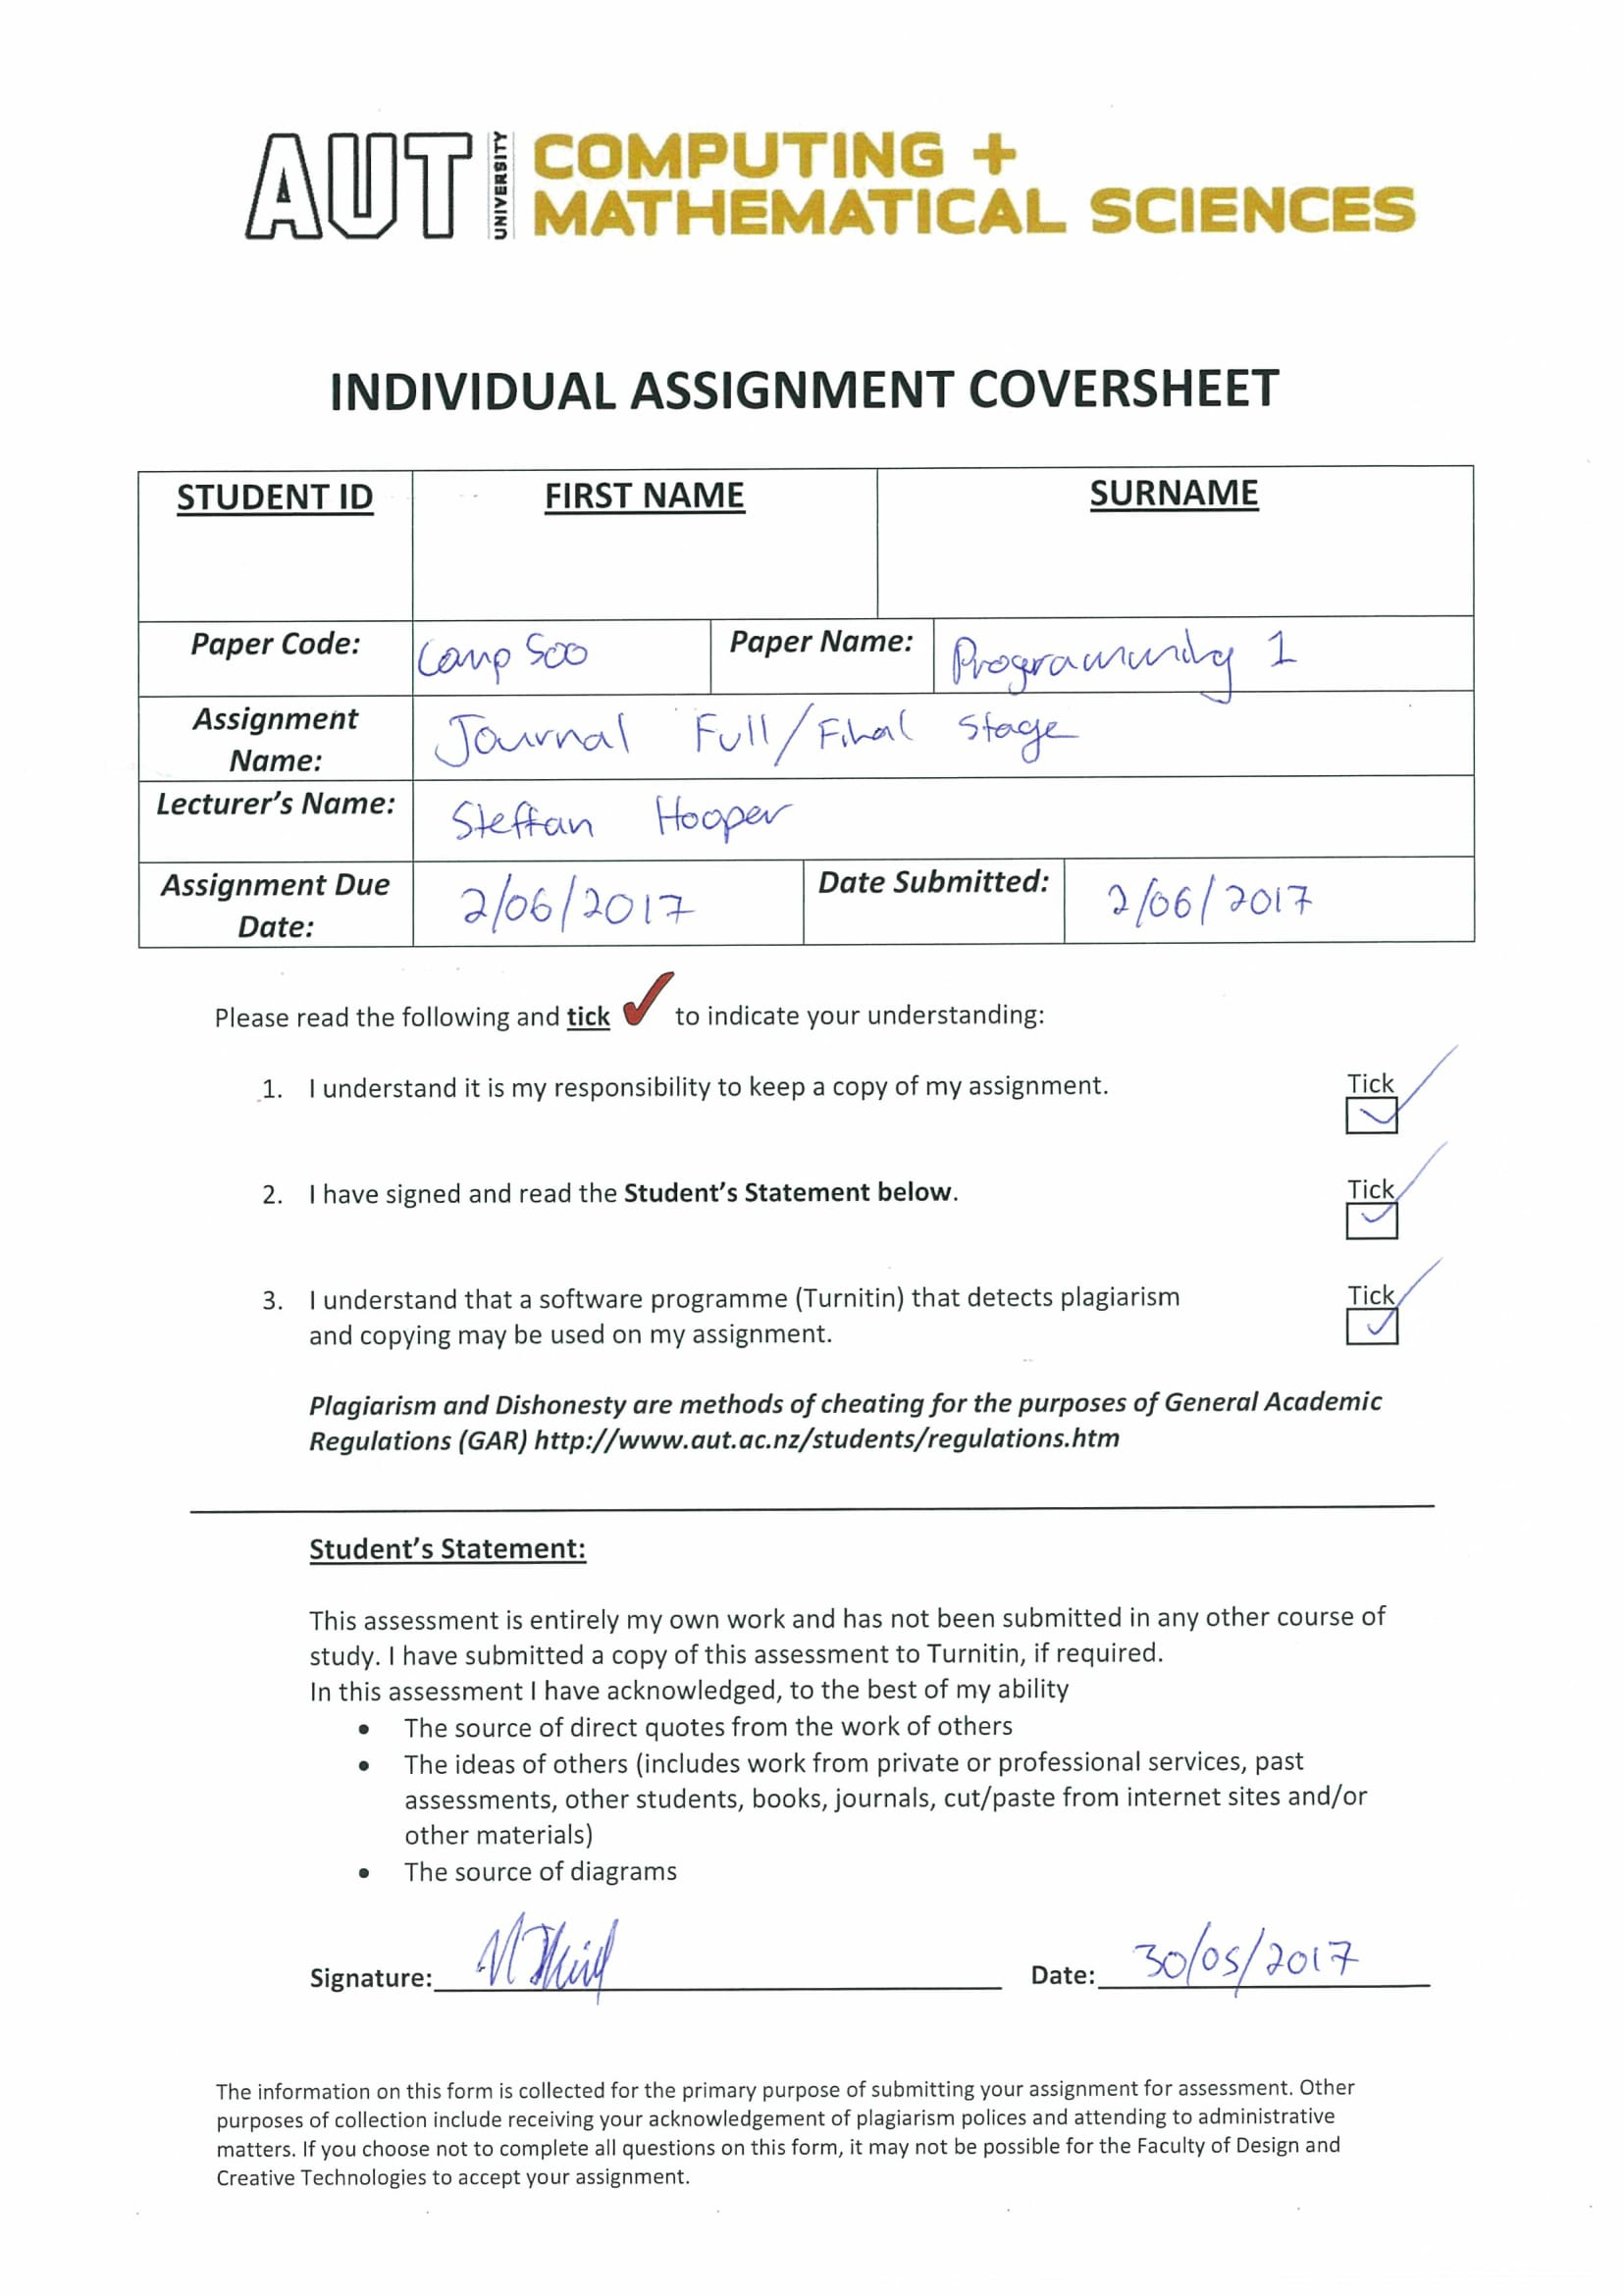 AUT UNIVERSITY COMPUTING +
MATHEMATICAL SCIENCES
INDIVIDUAL ASSIGNMENT COVERSHEET
STUDENT ID FIRST NAME SURNAME
Paper Code: Comp 500 Paper Name: Programming 1
Assignment
Name: Journal Full/Final Stage
Lecturer's Name: Steffan Hooper
Assignment Due
Date: 2/06/2017 Date Submitted: 2/06/2017
Please read the following and tick to indicate your understanding:
1. I understand it is my responsibility to keep a copy of my assignment. Tick
2. I have signed and read the Student's Statement below. Tick
3. I understand that a software programme (Turnitin) that detects plagiarism Tick
and copying may be used on my assignment.
Plagiarism and Dishonesty are methods of cheating for the purposes of General Academic
Regulations (GAR) http://www.aut.ac.nz/students/regulations.htm
Student's Statement:
This assessment is entirely my own work and has not been submitted in any other course of
study. I have submitted a copy of this assessment to Turnitin, if required.
In this assessment I have acknowledged, to the best of my ability
• The source of direct quotes from the work of others
• The ideas of others (includes work from private or professional services, past
assessments, other students, books, journals, cut/paste from internet sites and/or
other materials)
• The source of diagrams
Signature: Date: 30/05/2017
The information on this form is collected for the primary purpose of submitting your assignment for assessment. Other
purposes of collection include receiving your acknowledgement of plagiarism polices and attending to administrative
matters. If you choose not to complete all questions on this form, it may not be possible for the Faculty of Design and
Creative Technologies to accept your assignment.